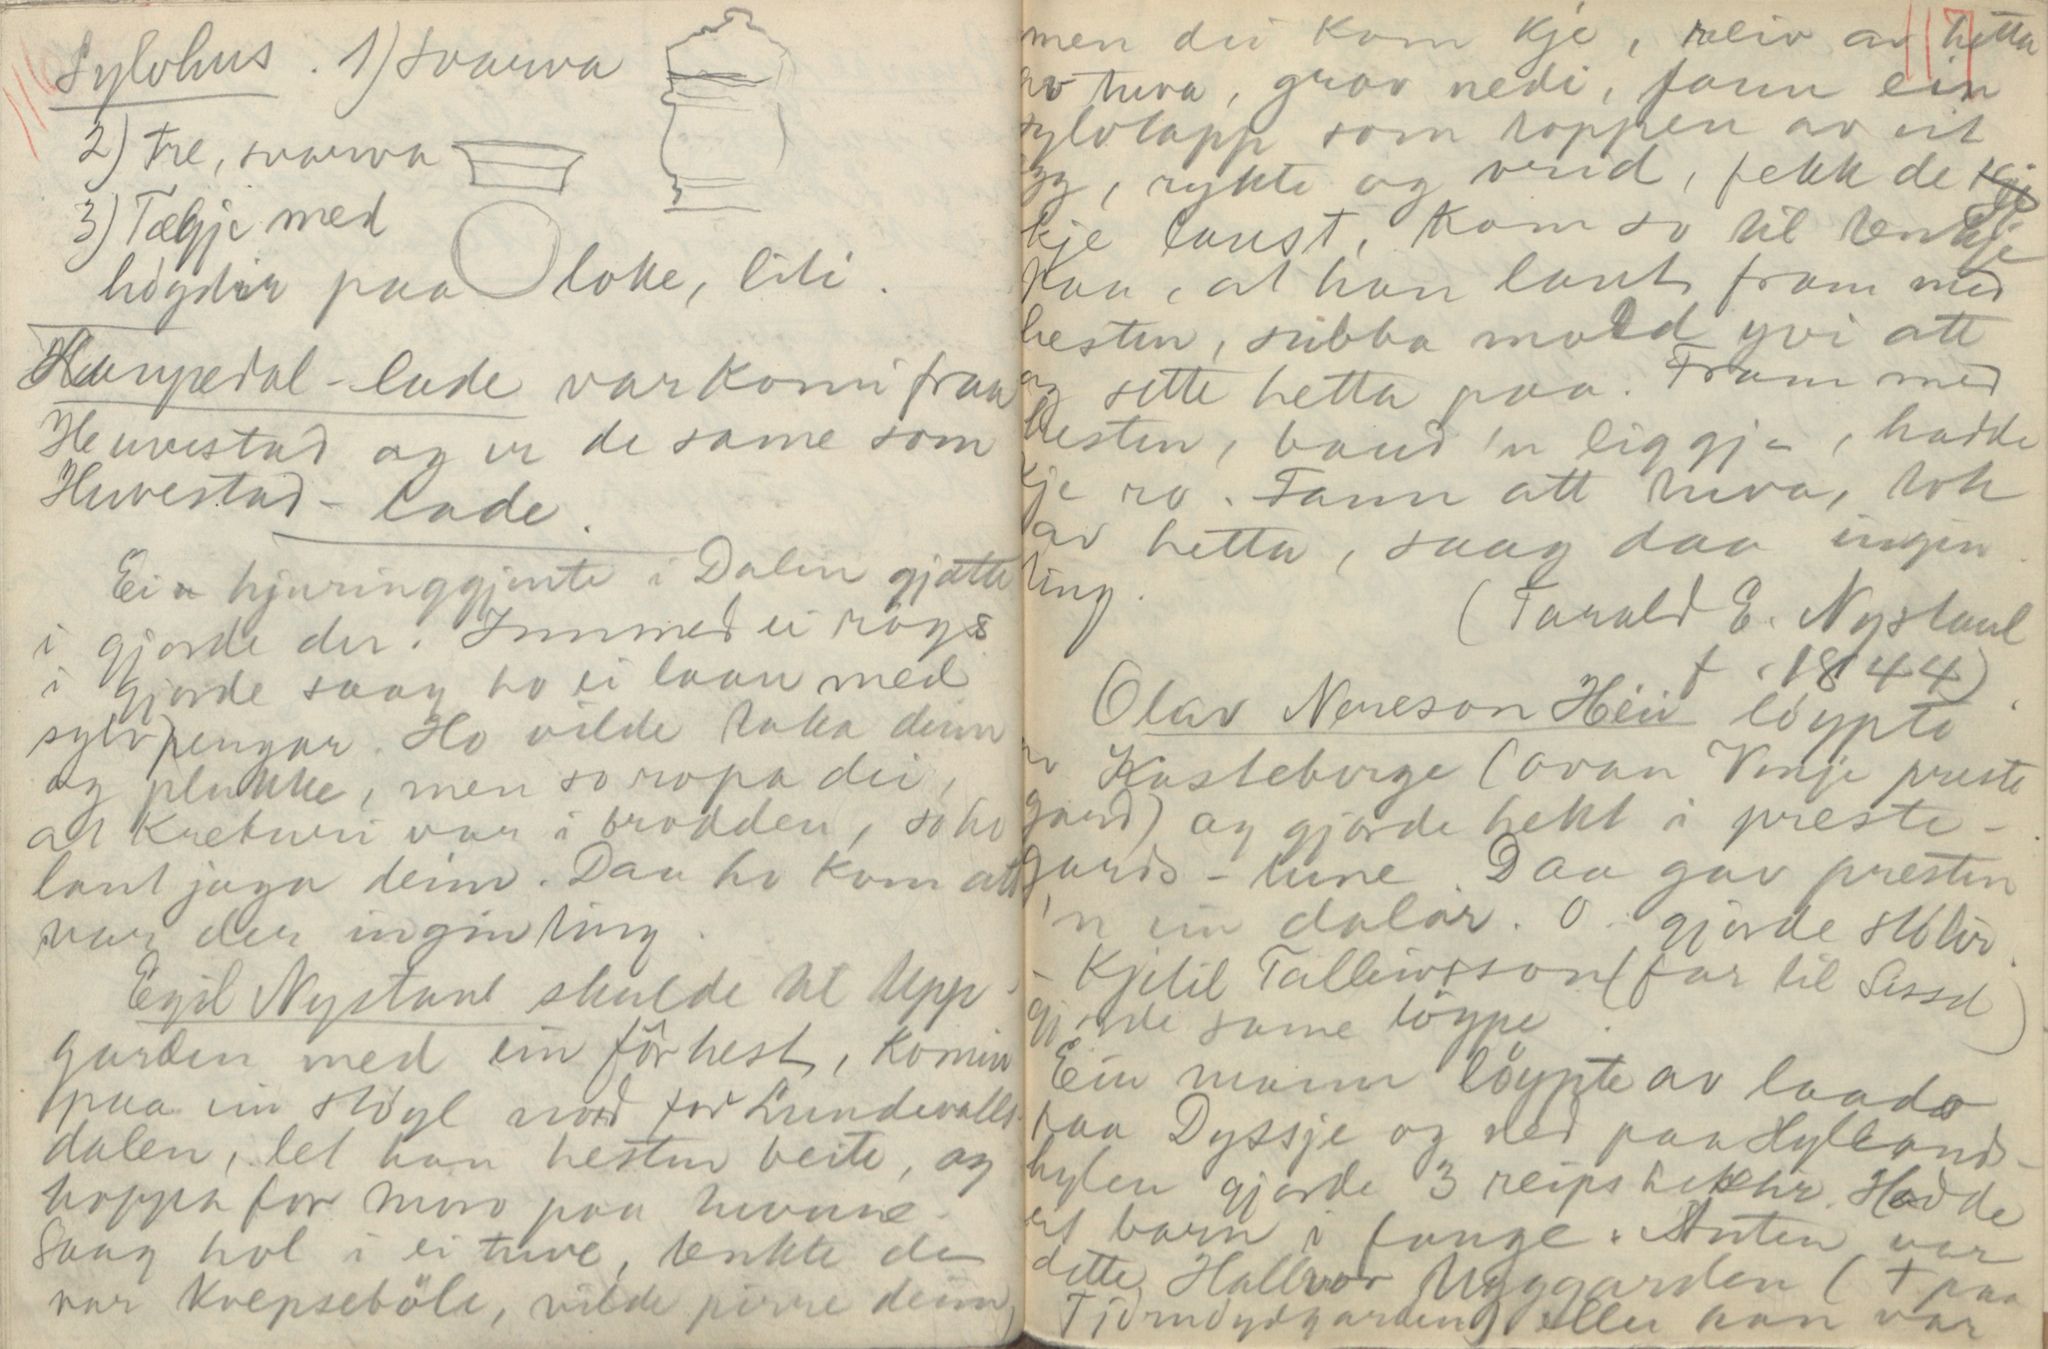 116
Sylvhus. 1) svarva
2) Tre, svarva
3) Tægje med
høgdir paa loke, liti.
Haupedal-lade var komi fraa
Huvestad og er de same som
Huvestad-lade.
Ei hjuringgjente i Dalen gjætte
i gjorde der. Innmed ei røys
i gjorde saag ho ei laan med
sylvpengar. Ho vilde taka deim
og plukke, men so ropa dei,
at kreturi var i brodden, so ho
laut jaga deim. Daa ho kom att
var der ingin ting.
Egil Nystaul skulde til Upp-
garden med ein förhest, komin
paa ein stögl nord for Lundevalls-
dalen, let han hesten beite, og
hoppa for moro paa tuvune.
Saag hol i ei tuve, tenkte de
var kvepseböle, vilde pirre deim,
117
men dei kom kje, reiv av hetta
av tuva, grov nedi, fann ein
sylvtapp som toppen av eit
egg, rykte og vreid, fekk de
kje laust. Kom so til tenkje
paa, at han laut fram med
hesten, subba mold yvi att
og sette hetta paa. Fram med
hesten, baud 'n liggja, hadde
kje ro. Fann att tuva, tok
av hetta, saag daa ingin
ting.
(Tarald E. Nystaul
† 1844)
Olav Nereson Hein löypte
av Kasteberge (ovan Vinje preste
gard) og gjorde hekt i preste-
gards-tune. Daa gav presten
'n ein dalar. O. gjorde stökir.
- Kjetil Talleivsson (far til Sissel)
gjorde same löype.
Ein mann löypte av laado
paa Dyssje og ned paa Hylland-
hylen gjorde 3 reipshektir. Hadde
eit barn i fange. Anten var
dette Hallvor Uppgarden († paa
eller han var